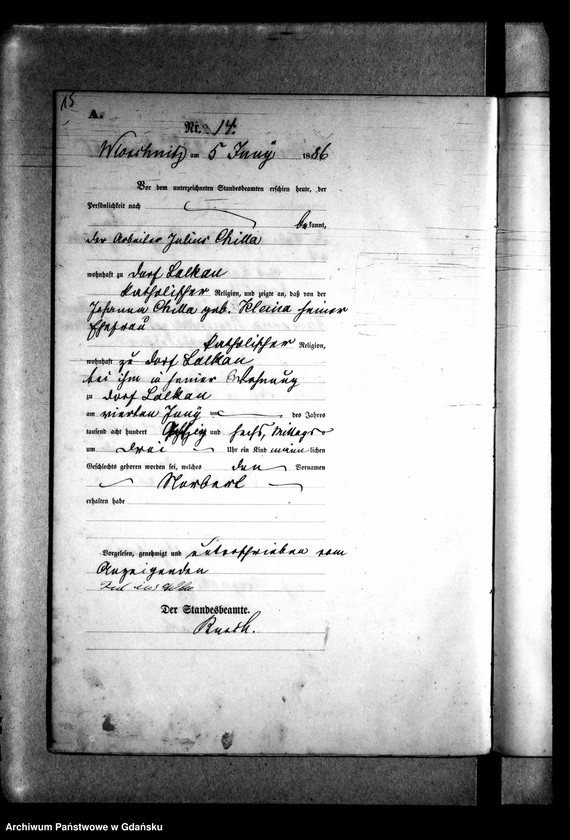 15
A.
Nr. 14.
Wloschnitz am 5 Juny 1886
Vor dem unterzeichneten Standesbeamten erschien heute, der
Persönlichkeit nach
bekannt,
der Arbeiter Julius Chilla
wohnhaft zu Dorf Lalkau
katholischer Religion, und zeigte an, daß von der
Johanna Chilla geb. Kleina seiner
Ehefrau
katholischer Religion,
wohnhaft zu Dorf Lalkau
bei ihm in seiner Wohnung
zu Dorf Lalkau
am vierten Juny des Jahres
tausend acht hundert achtzig und sechs, Mittags
um drei Uhr ein Kind männlichen
Geschlechts geboren worden sei, welches den Vornamen
Norbert
erhalten habe
Vorgelesen, genehmigt und unterschrieben vom
Anzeigenden
Der Standesbeamte.
Archiwum Państwowe w Gdańsku